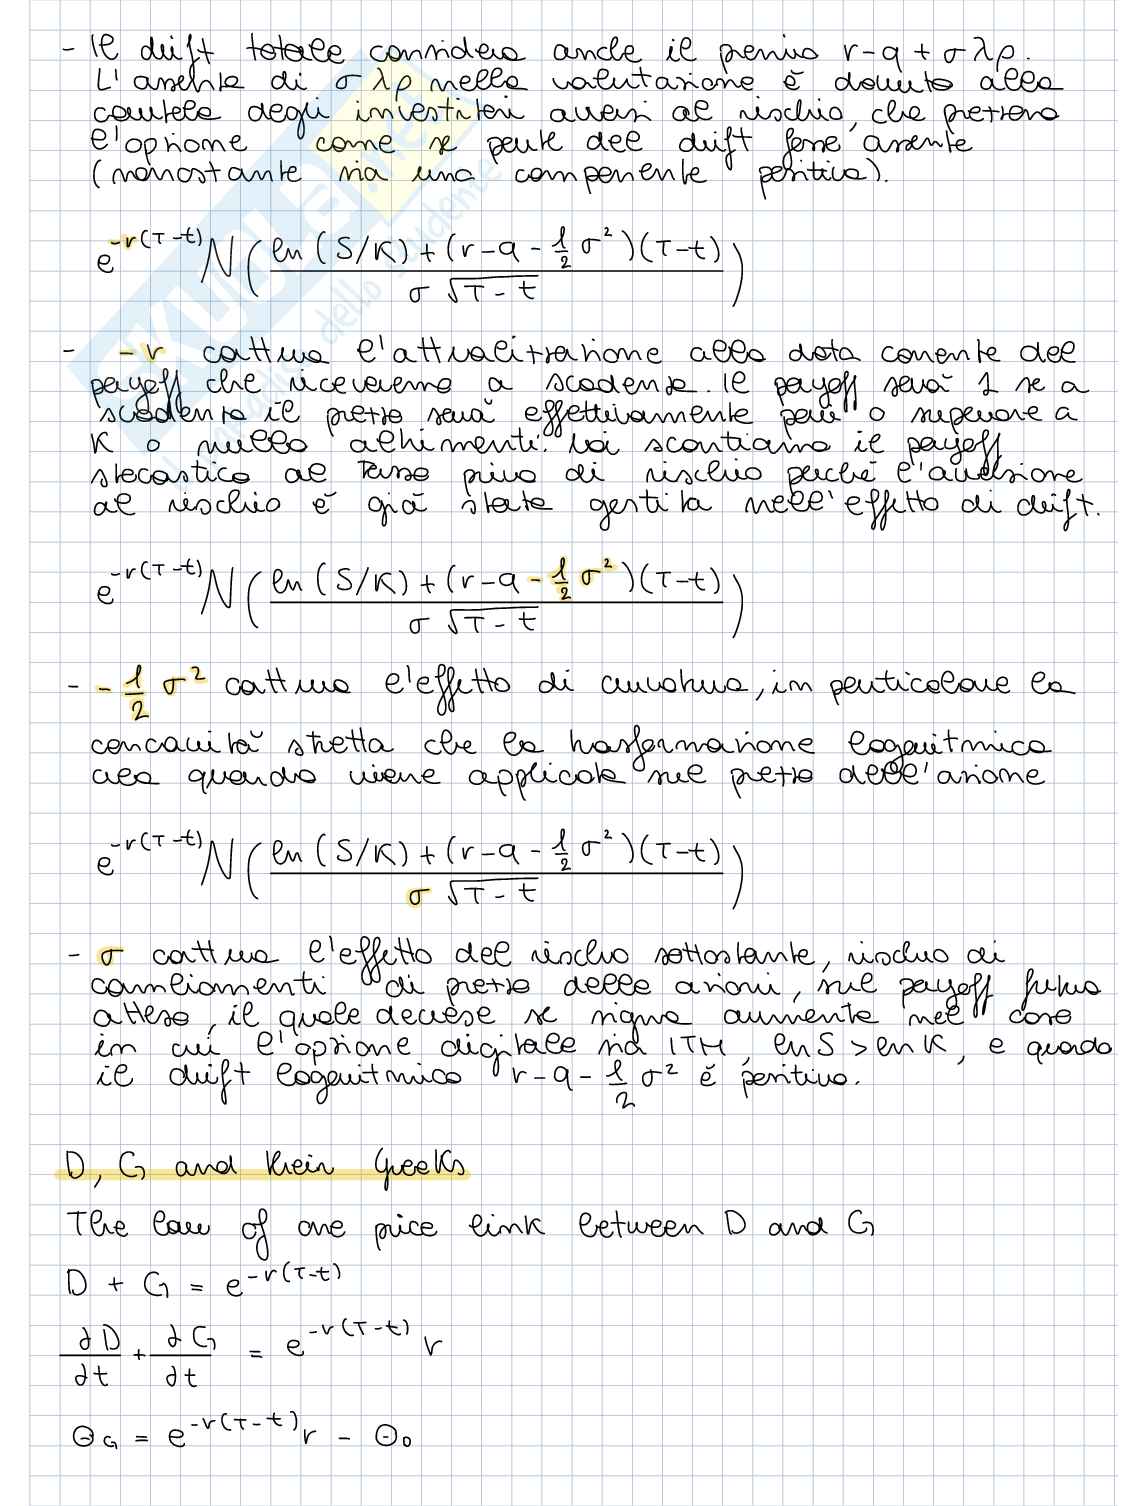 - Il drift totale considera anche il premio r-q + σλρ.
L'assenza di σλρ nella valutazione è dovuta alla
cautela degli investitori avversi al rischio, che prezzano
l'opzione come se parte del drift fosse assente
(nonostante sia una componente positiva).
e^{-r(T-t)} N( (ln(S/K) + (r-q-1/2 σ²)(T-t)) / (σ √(T-t)) )
- -r cattura l'attualizzazione alla data corrente del
payoff che riceveremo a scadenza. Il payoff sarà 1 se a
scadenza il prezzo sarà effettivamente pari o superiore a
K o nullo altrimenti. Noi scontiamo il payoff
stocastico al tasso privo di rischio perché l'avversione
al rischio è già stata gestita nell'effetto di drift.
e^{-r(T-t)} N( (ln(S/K) + (r-q-1/2 σ²)(T-t)) / (σ √(T-t)) )
- -1/2 σ² cattura l'effetto di curvatura, in particolare la
concavità stretta che la trasformazione logaritmica
crea quando viene applicata sul prezzo dell'azione
e^{-r(T-t)} N( (ln(S/K) + (r-q-1/2 σ²)(T-t)) / (σ √(T-t)) )
- σ cattura l'effetto del rischio sottostante, rischio di
cambiamenti di prezzo delle azioni, sul payoff futuro
atteso, il quale decresce se sigma aumenta nel caso
in cui l'opzione digitale sia ITM, ln S > ln K, e quando
il drift logaritmico r-q-1/2 σ² è positivo.
D, G and their Greeks
The law of one price link between D and G
D + G = e^{-r(T-t)}
∂D/∂t + ∂G/∂t = e^{-r(T-t)} r
Θ_G = e^{-r(T-t)} r - Θ_D